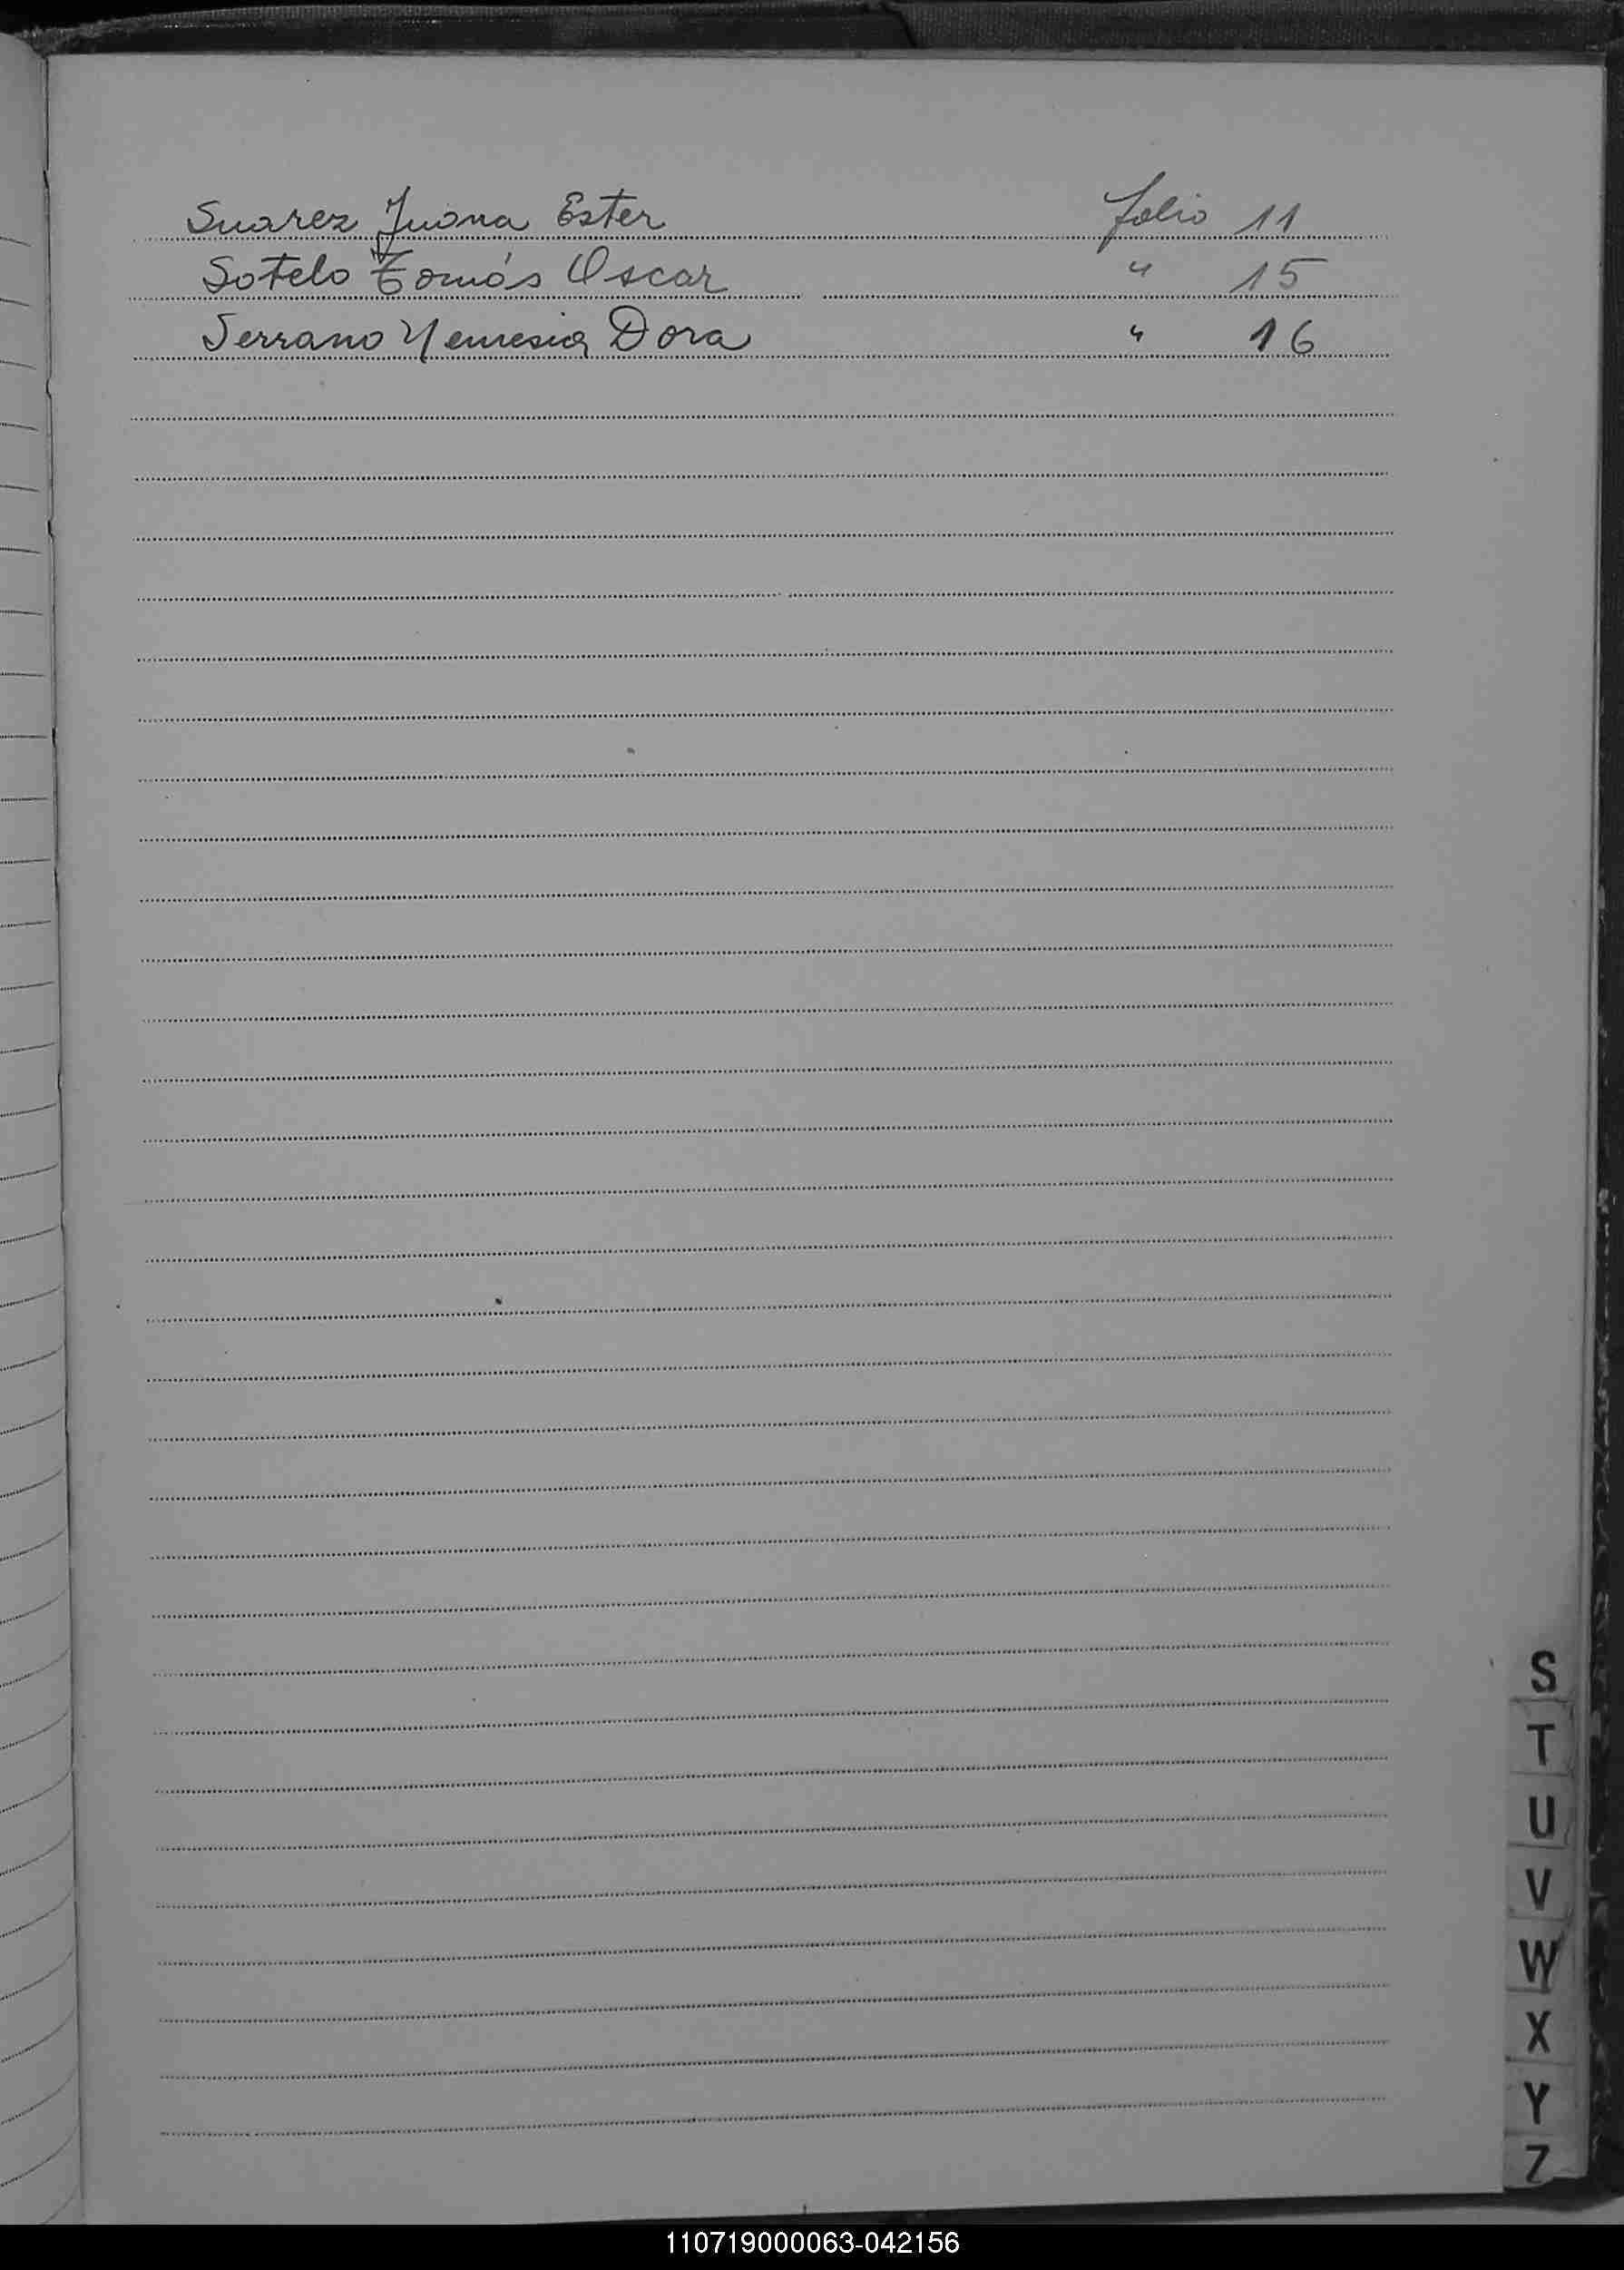 Suarez Juana Ester folio 11
Sotelo Tomás Oscar " 15
Serrano Nemesia Dora " 16
S
T
U
V
W
X
Y
Z
110719000063-042156